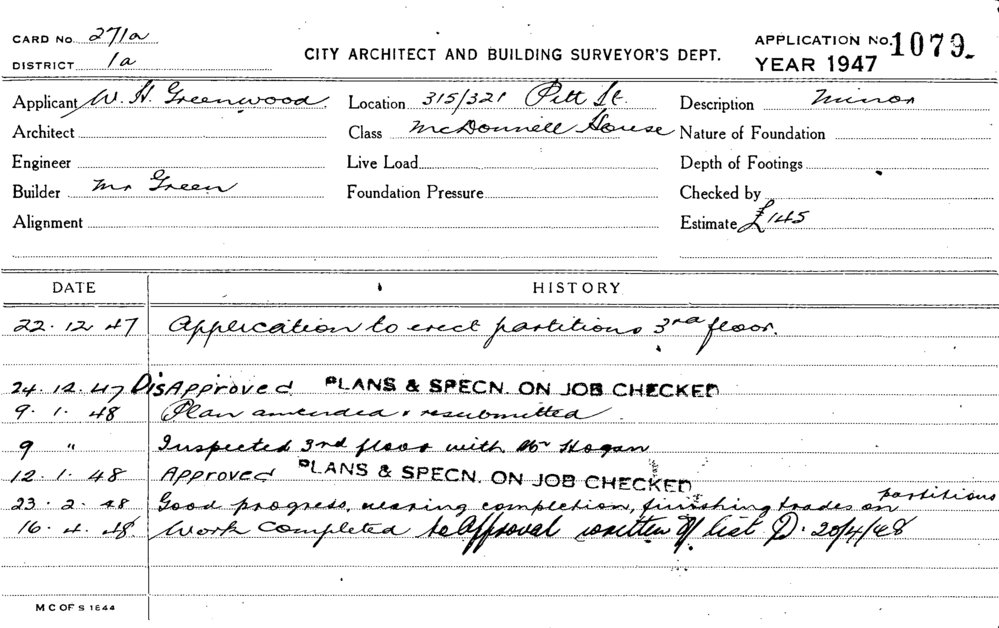 CARD No. 271a
DISTRICT 1a
CITY ARCHITECT AND BUILDING SURVEYOR'S DEPT.
APPLICATION No. 1079.
YEAR 1947
Applicant W. H. Greenwood. Location 315/321 Pitt St. Description Minor
Architect Class McDonnell House Nature of Foundation
Engineer Live Load Depth of Footings
Builder Mr Green Foundation Pressure Checked by
Alignment Estimate £145
DATE HISTORY
22.12.47 Application to erect partitions 3rd floor.
24.12.47 DisApproved PLANS & SPECN. ON JOB CHECKED
9.1.48 Plan amended & resubmitted
9 " Inspected 3rd floor with Mr Hogan
12.1.48 Approved PLANS & SPECN. ON JOB CHECKED
23.2.48 Good progress, nearing completion, finishing trades on partitions
16.4.48. Work Completed to Approval written off list D. 20/4/48
M C OF S 1644